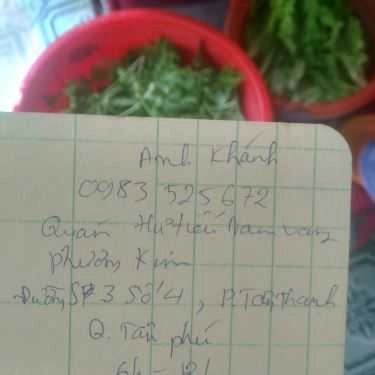 Anh Khánh
0983 525672
Quán Hủ tiếu Nam vang
phương Kim
Đường số 4, P. Tân Thành
Q. Tân phú